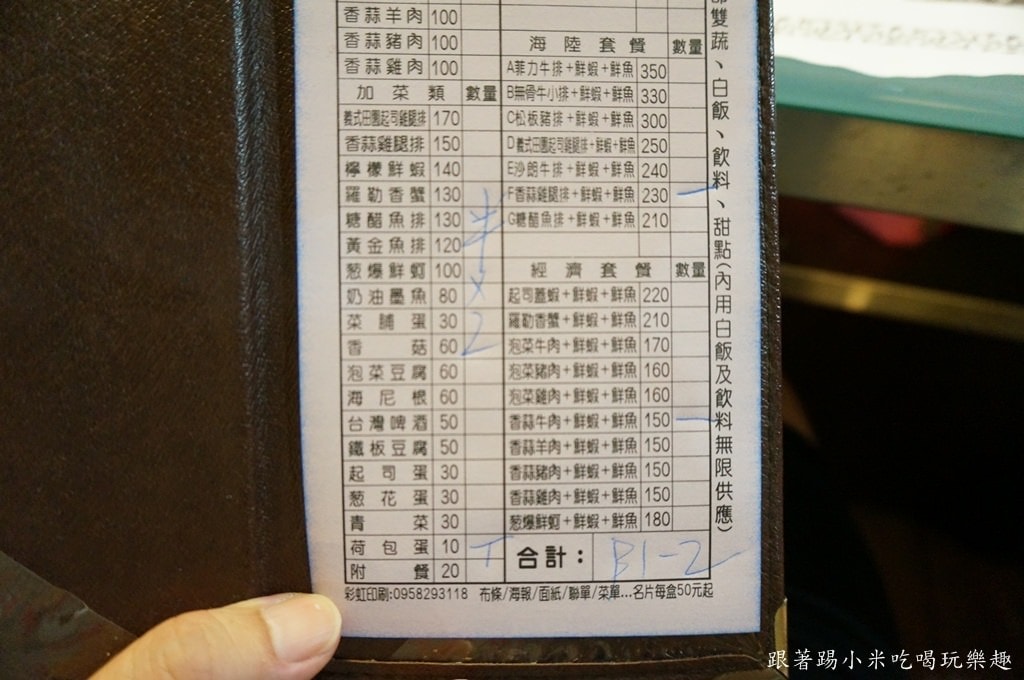 香蒜羊肉 100
香蒜豬肉 100
香蒜雞肉 100
加菜類 數量
義式田園起司雞腿排 170
香蒜雞腿排 150
檸檬鮮蝦 140
羅勒香蟹 130
糖醋魚排 130
黃金魚排 120
葱爆鮮蚵 100
奶油墨魚 80
菜脯蛋 30
香菇 60
泡菜豆腐 60
海尼根 60
台灣啤酒 50
鐵板豆腐 50
起司蛋 30
葱花蛋 30
青菜 30
荷包蛋 10 T
附餐 20
牛 x 2
海陸套餐 數量
A菲力牛排+鮮蝦+鮮魚 350
B無骨牛小排+鮮蝦+鮮魚 330
C松板豬排+鮮蝦+鮮魚 300
D義式田園起司雞腿排+鮮蝦+鮮魚 250
E沙朗牛排+鮮蝦+鮮魚 240
F香蒜雞腿排+鮮蝦+鮮魚 230 一
G糖醋魚排+鮮蝦+鮮魚 210
經濟套餐 數量
起司蓋蝦+鮮蝦+鮮魚 220
羅勒香蟹+鮮蝦+鮮魚 210
泡菜牛肉+鮮蝦+鮮魚 170
泡菜豬肉+鮮蝦+鮮魚 160
泡菜雞肉+鮮蝦+鮮魚 160
香蒜牛肉+鮮蝦+鮮魚 150 一
香蒜羊肉+鮮蝦+鮮魚 150
香蒜豬肉+鮮蝦+鮮魚 150
香蒜雞肉+鮮蝦+鮮魚 150
葱爆鮮蚵+鮮蝦+鮮魚 180
合計： B1-2
雙蔬、白飯、飲料、甜點(內用白飯及飲料無限供應)
彩虹印刷:0958293118 布條/海報/面紙/聯單/菜單...名片每盒50元起
跟著踢小米吃喝玩樂趣